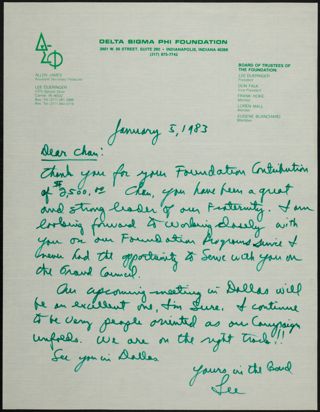 ΔΣΦ
DELTA SIGMA PHI FOUNDATION
2601 W. 86 STREET, SUITE 280 • INDIANAPOLIS, INDIANA 46268
(317) 875-7742
ALLEN JAMES
LEE DUERINGER
BOARD OF TRUSTEES OF
THE FOUNDATION
LEE DUERINGER
President
DON FALK
Vice President
FRANK NOKE
Member
LOREN MALL
Member
EUGENE BLANCHARD
Member
January 3, 1983
Dear Chan:
Thank you for your Foundation Contribution
of $2,500.00 Chan, you have been a great
and strong leader of our Fraternity. I am
looking forward to working closely with
you on our Foundation Programs since I
never had the opportunity to serve with you on
the Grand Council.
An upcoming meeting in Dallas will
be an excellent one, I'm sure. I continue
to be very people oriented as our Campaign
unfolds. We are on the right track!!
See you in Dallas
Yours in the Bond
Lee